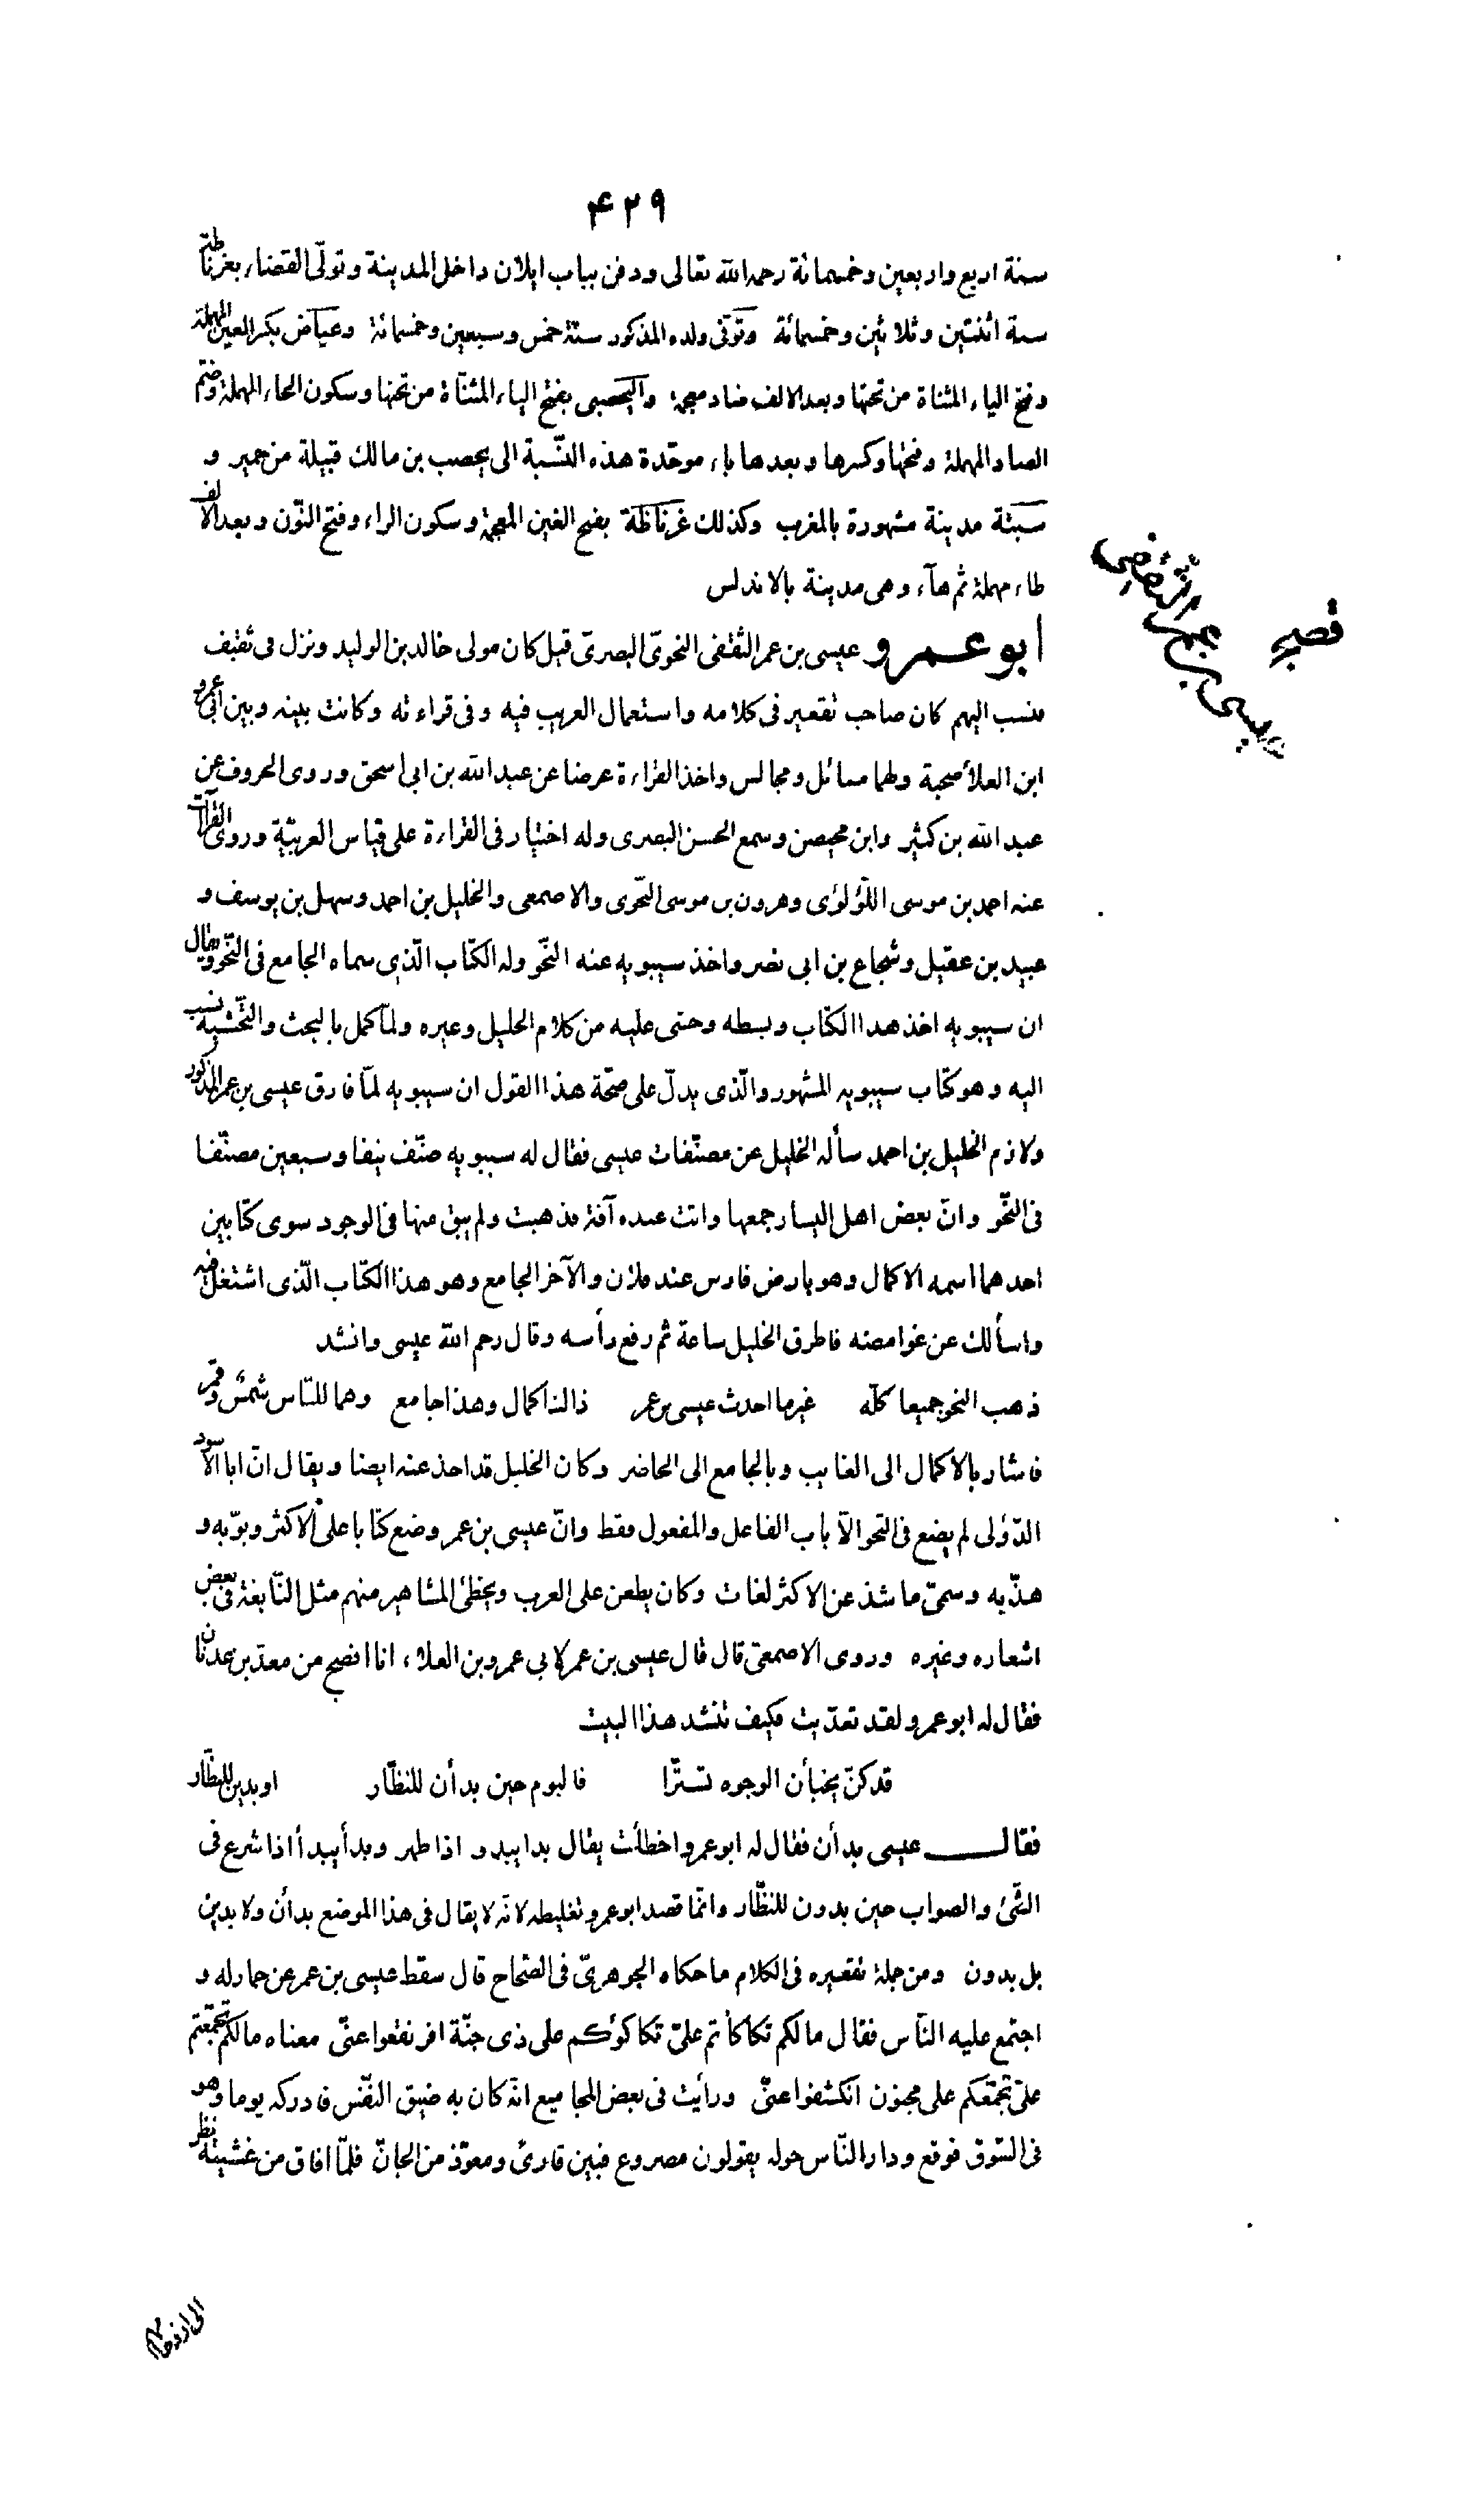 ۴۲۹
سنة اربع واربعين وخمسمائة رحمه الله تعالى ودفن بباب ايلان داخل المدينة وتولّى القضاء بغرناطة
سنة اثنتين وثلاثين وخمسمائة وتوفّى ولده المذكور سنة خمس وسبعين وخمسمائة وعياض بكسر العين المهملة
وفتح الياء المثناة من تحتها وبعد الالف ضاد معجمة واليحصبى بفتح الياء المثنّاة من تحتها وسكون الحاء المهملة وضمّ
الصاد المهملة وفتحها وكسرها وبعدها باء موحّدة هذه النّسبة الى يحصب بن مالك قبيلة من حمير و
سبتة مدينة مشهورة بالمغرب وكذلك غرناطة بفتح الغين المعجمة وسكون الراء وفتح النّون وبعد الالف
طاء مهملة ثم هآء وهى مدينة بالاندلس
قصيه
عيسى بن عمر الثقفى
أبو عمرو عيسى بن عمر الثقفى النحوىّ البصرىّ قيل كان مولى خالد بن الوليد ونزل فى ثقيف
فنسب اليهم كان صاحب تقعير فى كلامه واستعمال الغريب فيه وفى قراءته وكانت بينه وبين ابى عمرو
ابن العلاء صحبة ولهما مسائل ومجالس واخذ القراءة عرضا عن عبد الله بن ابى اسحق وروى الحروف عن
عبد الله بن كثير وابن محيصن وسمع الحسن البصرى وله اختيار فى القراءة على قياس العربيّة وروى القرآت
عنه احمد بن موسى اللّؤلؤى وهرون بن موسى النّحوى والاصمعى والخليل بن احمد وسهل بن يوسف و
عبيد بن عقيل وشجاع بن ابى نصر واخذ سيبويه عنه النّحو وله الكتاب الّذى سماه الجامع فى النّحو ويقال
ان سيبويه اخذ هذا الكتاب وبسطه وحشى عليه من كلام الخليل وغيره ولمّا كمل بالبحث والتّحشية نسب
اليه وهو كتاب سيبويه المشهور والّذى يدلّ على صحّة هذا القول ان سيبويه لمّا فارق عيسى بن عمر المذكور
ولازم الخليل بن احمد سأله الخليل عن مصنّفات عيسى فقال له سيبويه صنّف نيفا وسبعين مصنّفا
فى النّحو وانّ بعض اهل اليسار جمعها واتت عنده آفة فذهبت ولم يبق منها فى الوجود سوى كتابين
احدهما اسمه الاكمال وهو بارض فارس عند فلان والآخر الجامع وهو هذا الكتاب الّذى اشتغل فيه
واسألك عن غوامضه فاطرق الخليل ساعة ثم رفع رأسه وقال رحم الله عيسى وانشد
ذهب النحو جميعا كلّه غير ما احدث عيسى بن عمر ذاك اكمال وهذا جامع وهما للنّاس شمس وقمر
فاشار بالاكمال الى الغايب وبالجامع الى الحاضر وكان الخليل قد اخذ عنه ايضا ويقال انّ ابا الاسود
الدّؤلى لم يضع فى النّحو الّا باب الفاعل والمفعول فقط وانّ عيسى بن عمر وضع كتابا على الاكثر وبوّبه و
هذّبه وسمّى ما شذ عن الاكثر لغات وكان يطعن على العرب ويخطئ المشاهير منهم مثل النّابغة فى بعض
اشعاره وغيره وروى الاصمعىّ قال قال عيسى بن عمر لابى عمرو بن العلاء انا افصح من معدّ بن عدنان
فقال له ابو عمرو لقد تعدّيت فكيف تنشد هذا البيت
قد كنّ يخبأن الوجوه تستّرا فاليوم حين بدأن للنظّار او بدين للنظّار
فقال عيسى بدأن فقال له ابو عمرو اخطأت يقال بدا يبدو اذا ظهر وبدأ يبدأ اذا شرع فى
الشّئ والصواب حين بدون للنظّار وانّما قصد ابو عمرو تغليطه لانّه لا يقال فى هذا الموضع بدأن ولا بدين
بل بدون ومن جملة تقعيره فى الكلام ما حكاه الجوهرىّ فى الصّحاح قال سقط عيسى بن عمر عن حمار له و
اجتمع عليه النّاس فقال ما لكم تكأكأتم علىّ تكأكؤكم على ذى جنّة افرنقعوا عنّى معناه ما لكم تجمّعتم
علىّ تجمّعكم على مجنون انكشفوا عنّى ورأيت فى بعض المجاميع انّه كان به ضيق النّفس فادركه يوما وهو
فى السّوق فوقع ودار النّاس حوله يقولون مصروع فبين قارئ ومعوّذ من الجانّ فلمّا افاق من غشيته نظر
الى ازدحامهم